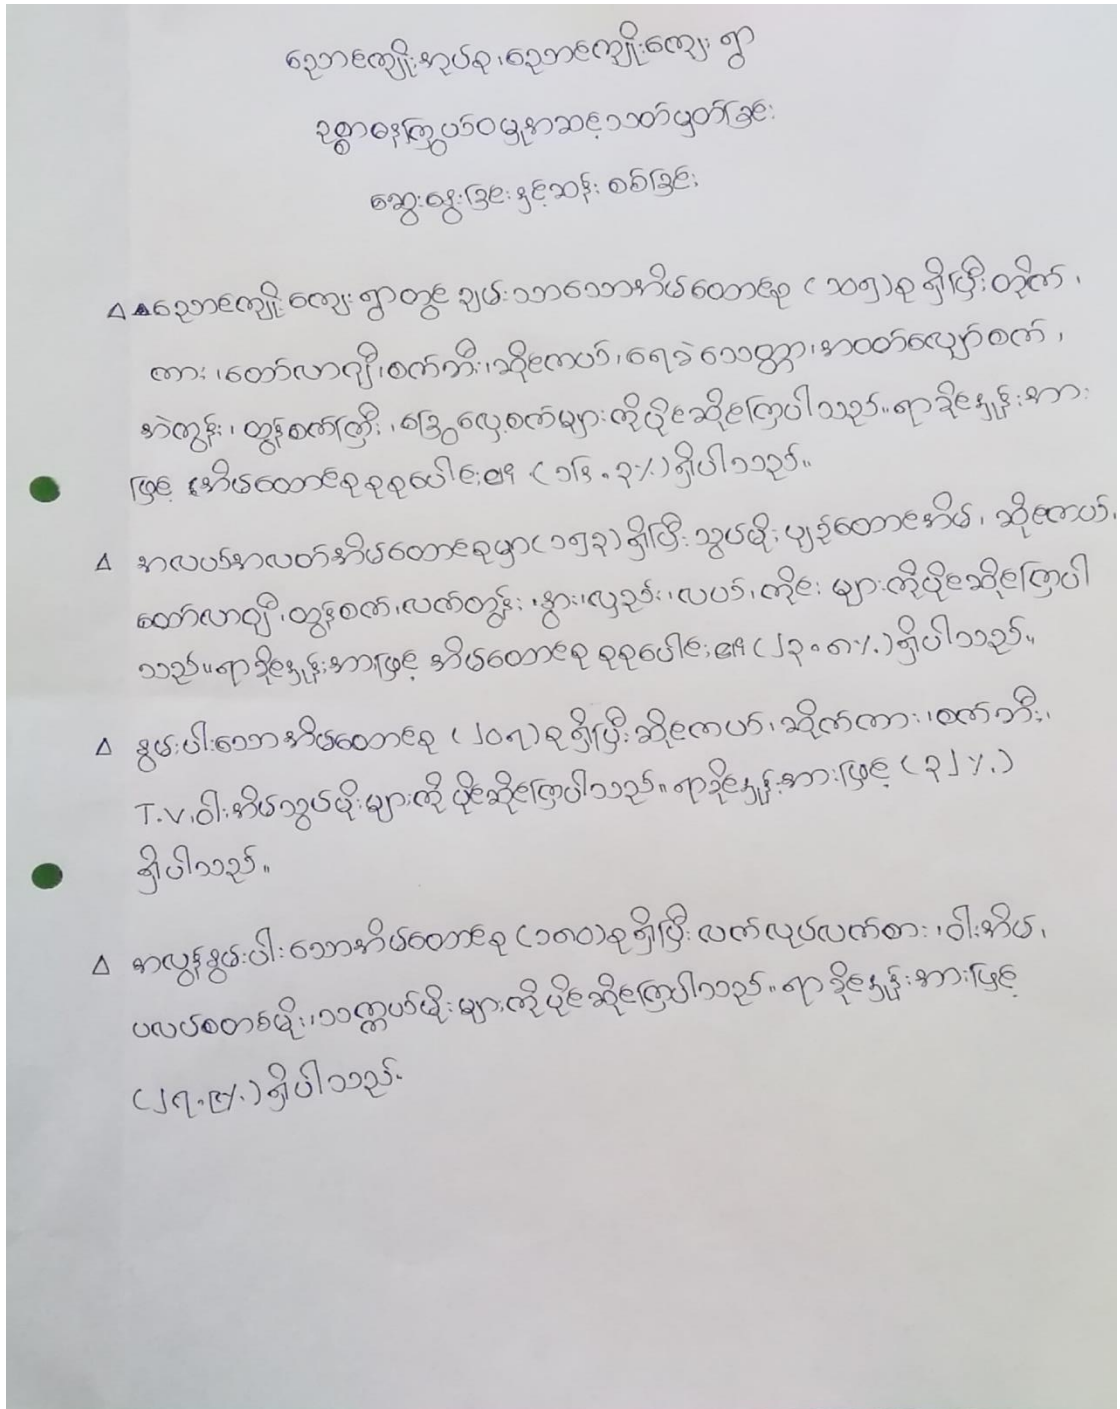 ညောင်ကျိုးအုပ်စု၊ ညောင်ကျိုးကျေးရွာ
ဥစ္စာဓနကြွယ်ဝမှုအဆင့်သတ်မှတ်ခြင်း
ဆွေးနွေးခြင်းနှင့်ဆန်းစစ်ခြင်း
Δ ညောင်ကျိုးကျေးရွာတွင် ချမ်းသာသောအိမ်ထောင်စု ( ၁၀၅ ) စု ရှိပြီး တိုက်၊
ကား၊ ထော်လာဂျီ၊ စက်ဘီး၊ ဆိုင်ကယ်၊ ရေခဲသေတ္တာ၊ အဝတ်လျှော်စက်၊
အဲကွန်း၊ ထွန်စက်ကြီး၊ ခြွေလှေ့စက်များကိုပိုင်ဆိုင်ကြပါသည်။ ရာခိုင်နှုန်းအား
ဖြင့် အိမ်ထောင်စုစုစုပေါင်း၏ ( ၁၆.၃% ) ရှိပါသည်။
Δ အလယ်အလတ်အိမ်ထောင်စုမှာ ( ၁၅၃ ) ရှိပြီး သွပ်မိုး ပျဉ်ထောင်အိမ်၊ ဆိုင်ကယ်၊
ထော်လာဂျီ၊ ထွန်စက်၊ လက်တွန်း၊ နွား၊ လှည်း၊ လယ်၊ ကိုင်း များကိုပိုင်ဆိုင်ကြပါ
သည်။ ရာခိုင်နှုန်းအားဖြင့် အိမ်ထောင်စု စုစုပေါင်း၏ ( ၂၃.၈% ) ရှိပါသည်။
Δ နွမ်းပါးသောအိမ်ထောင်စု ( ၂၀၅ ) စု ရှိပြီး ဆိုင်ကယ်၊ ဆိုက်ကား၊ စက်ဘီး၊
T.V, ဝါးအိမ်သွပ်မိုးများကို ပိုင်ဆိုင်ကြပါသည်။ ရာခိုင်နှုန်းအားဖြင့် ( ၃၂% )
ရှိပါသည်။
Δ အလွန်နွမ်းပါးသောအိမ်ထောင်စု ( ၁၈၀ ) စု ရှိပြီး လက်လုပ်လက်စား၊ ဝါးအိမ်၊
ပလပ်စတစ်မိုး၊ သက္ကယ်မိုးများကိုပိုင်ဆိုင်ကြပါသည်။ ရာခိုင်နှုန်းအားဖြင့်
( ၂၇.၉% ) ရှိပါသည်။